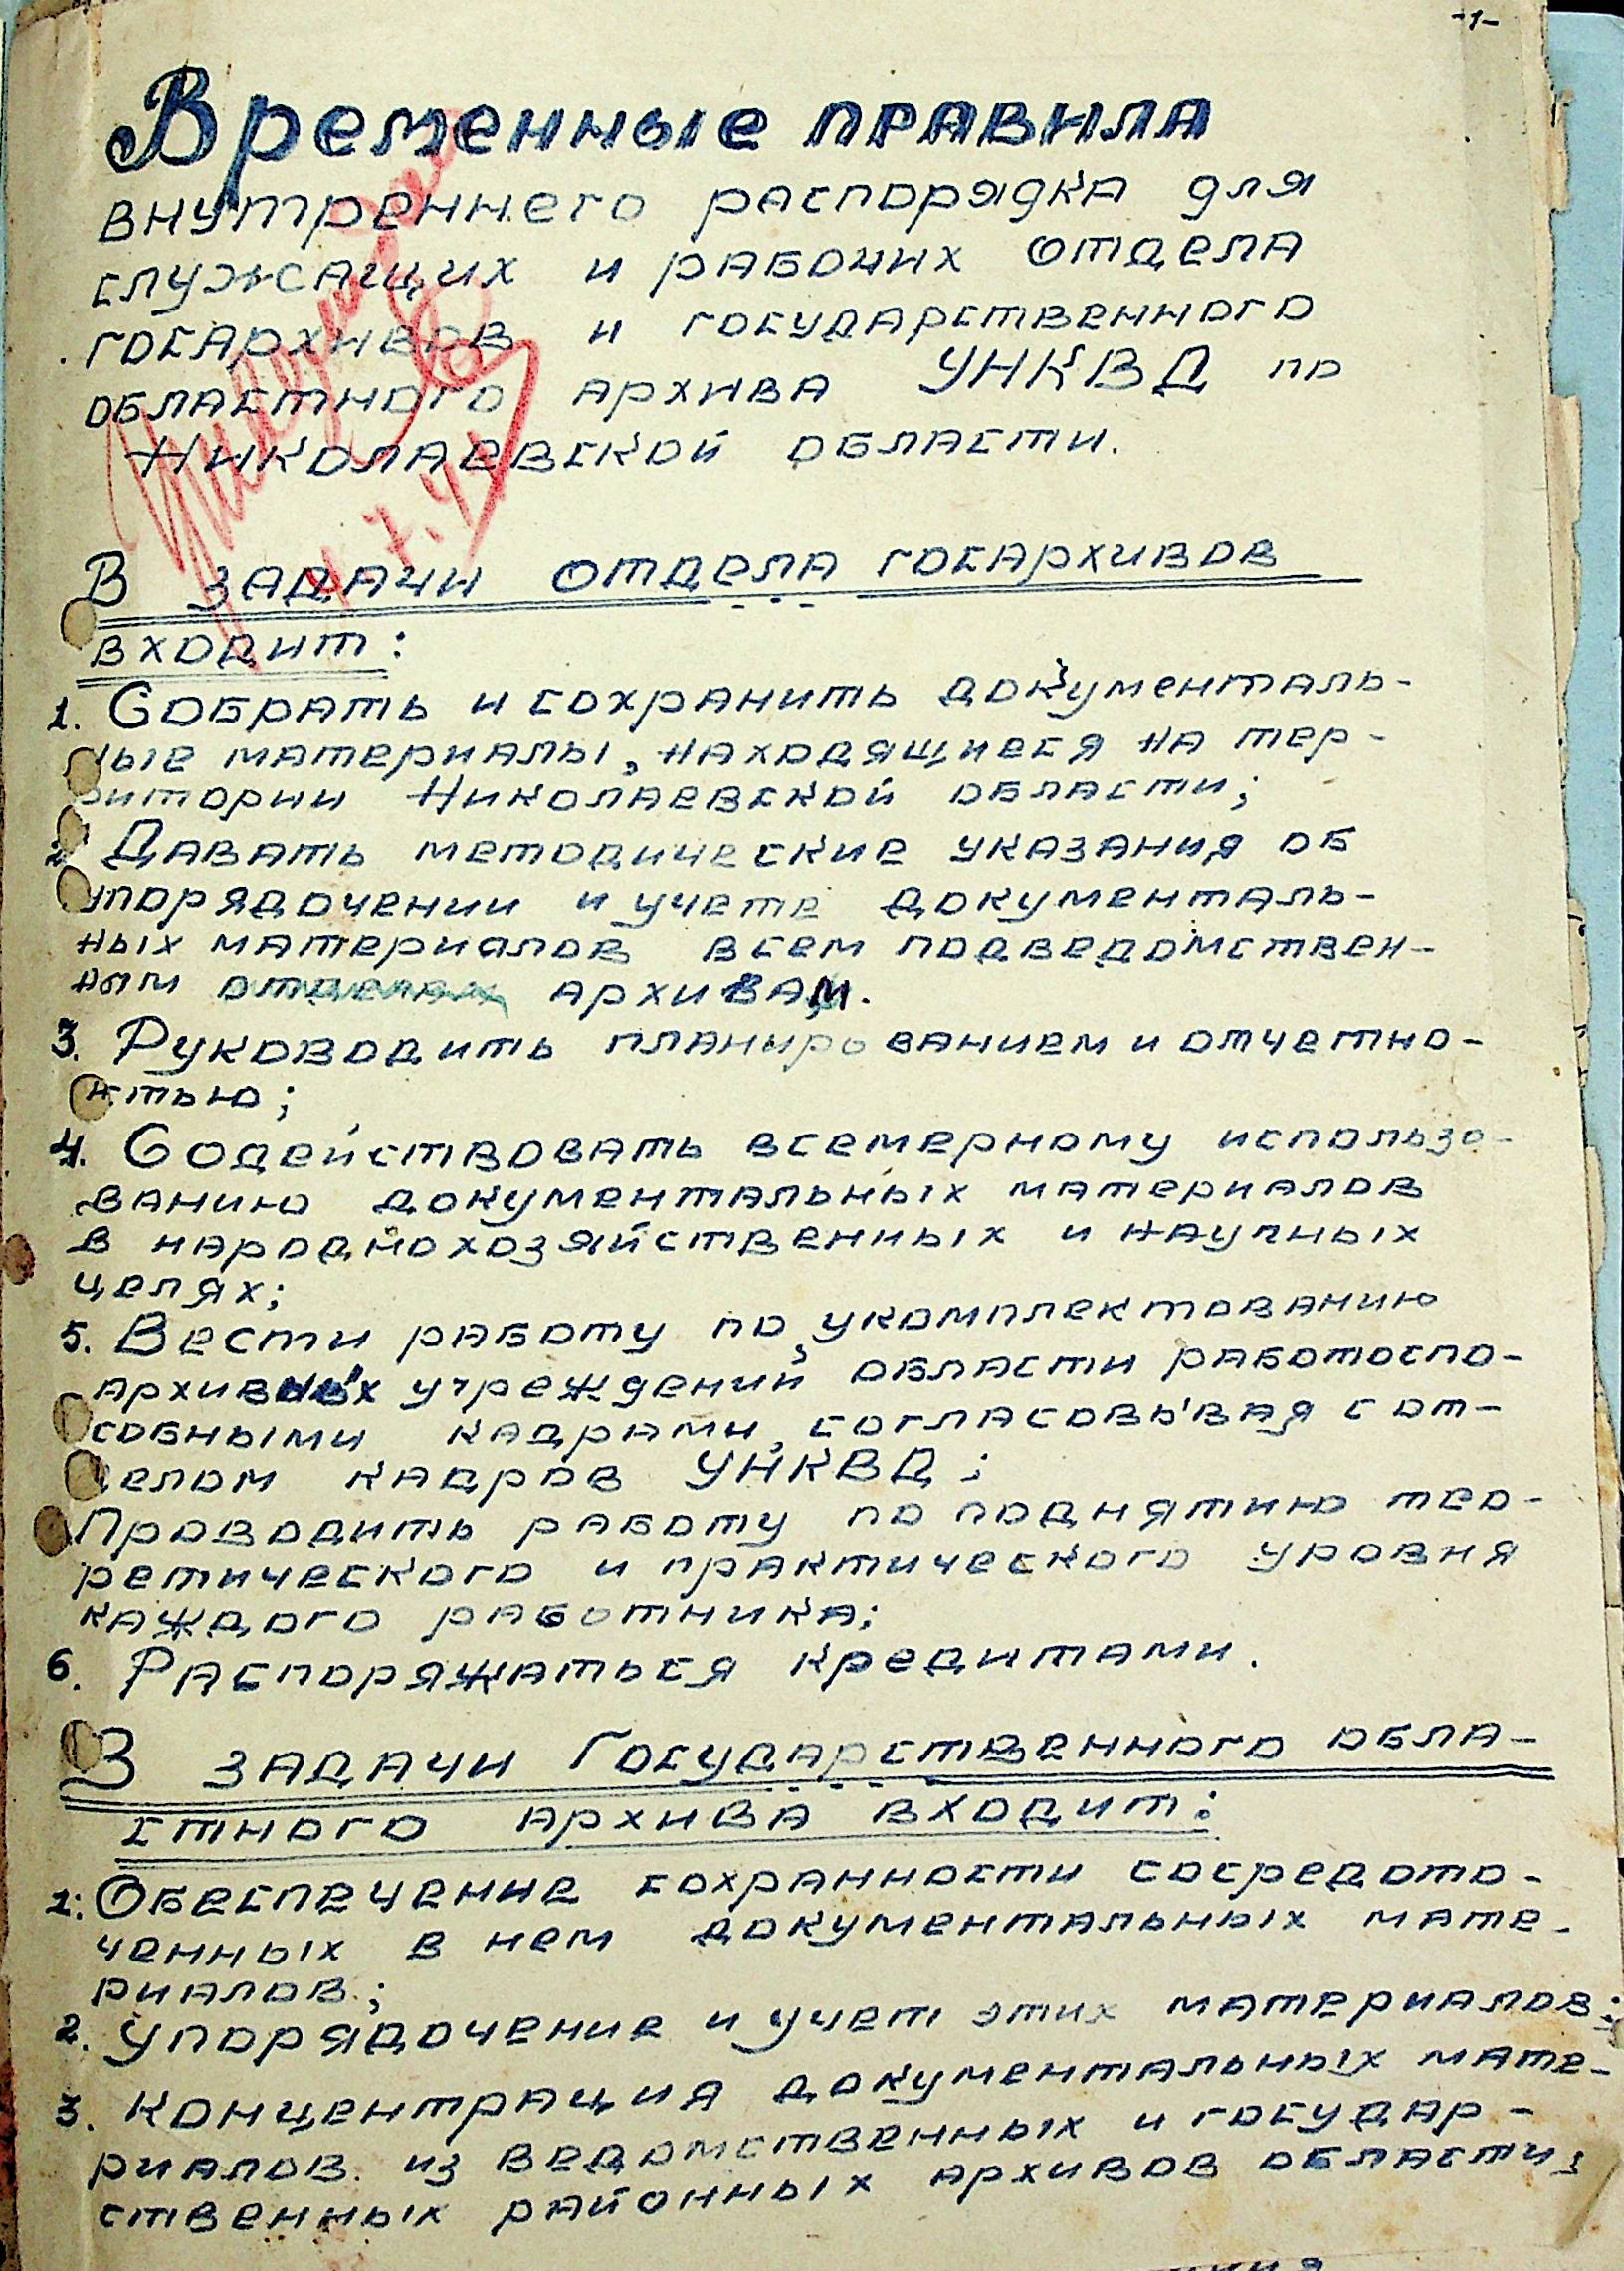 -1-
Временные правила
внутреннего распорядка для
служащих и рабочих отдела
госархивов и государственного
областного архива УНКВД по
Николаевской области.
В задачи отдела госархивов
входит:
1. Собрать и сохранить документаль-
ные материалы, находящиеся на тер-
ритории Николаевской области;
2. Давать методические указания об
упорядочении и учете документаль-
ных материалов всем подведомствен-
ным архивам.
3. Руководить планированием и отчетно-
стью;
4. Содействовать всемерному использо-
ванию документальных материалов
в народнохозяйственных и научных
целях;
5. Вести работу по укомплектованию
архивных учреждений области работоспо-
собными кадрами, согласовывая с от-
делом кадров УНКВД;
Проводить работу по поднятию тео-
ретического и практического уровня
каждого работника;
6. Распоряжаться кредитами.
В задачи Государственного обла-
стного архива входит:
1. Обеспечение сохранности сосредото-
ченных в нем документальных мате-
риалов;
2. Упорядочение и учет этих материалов;
3. Концентрация документальных мате-
риалов из ведомственных и государ-
ственных районных архивов области;